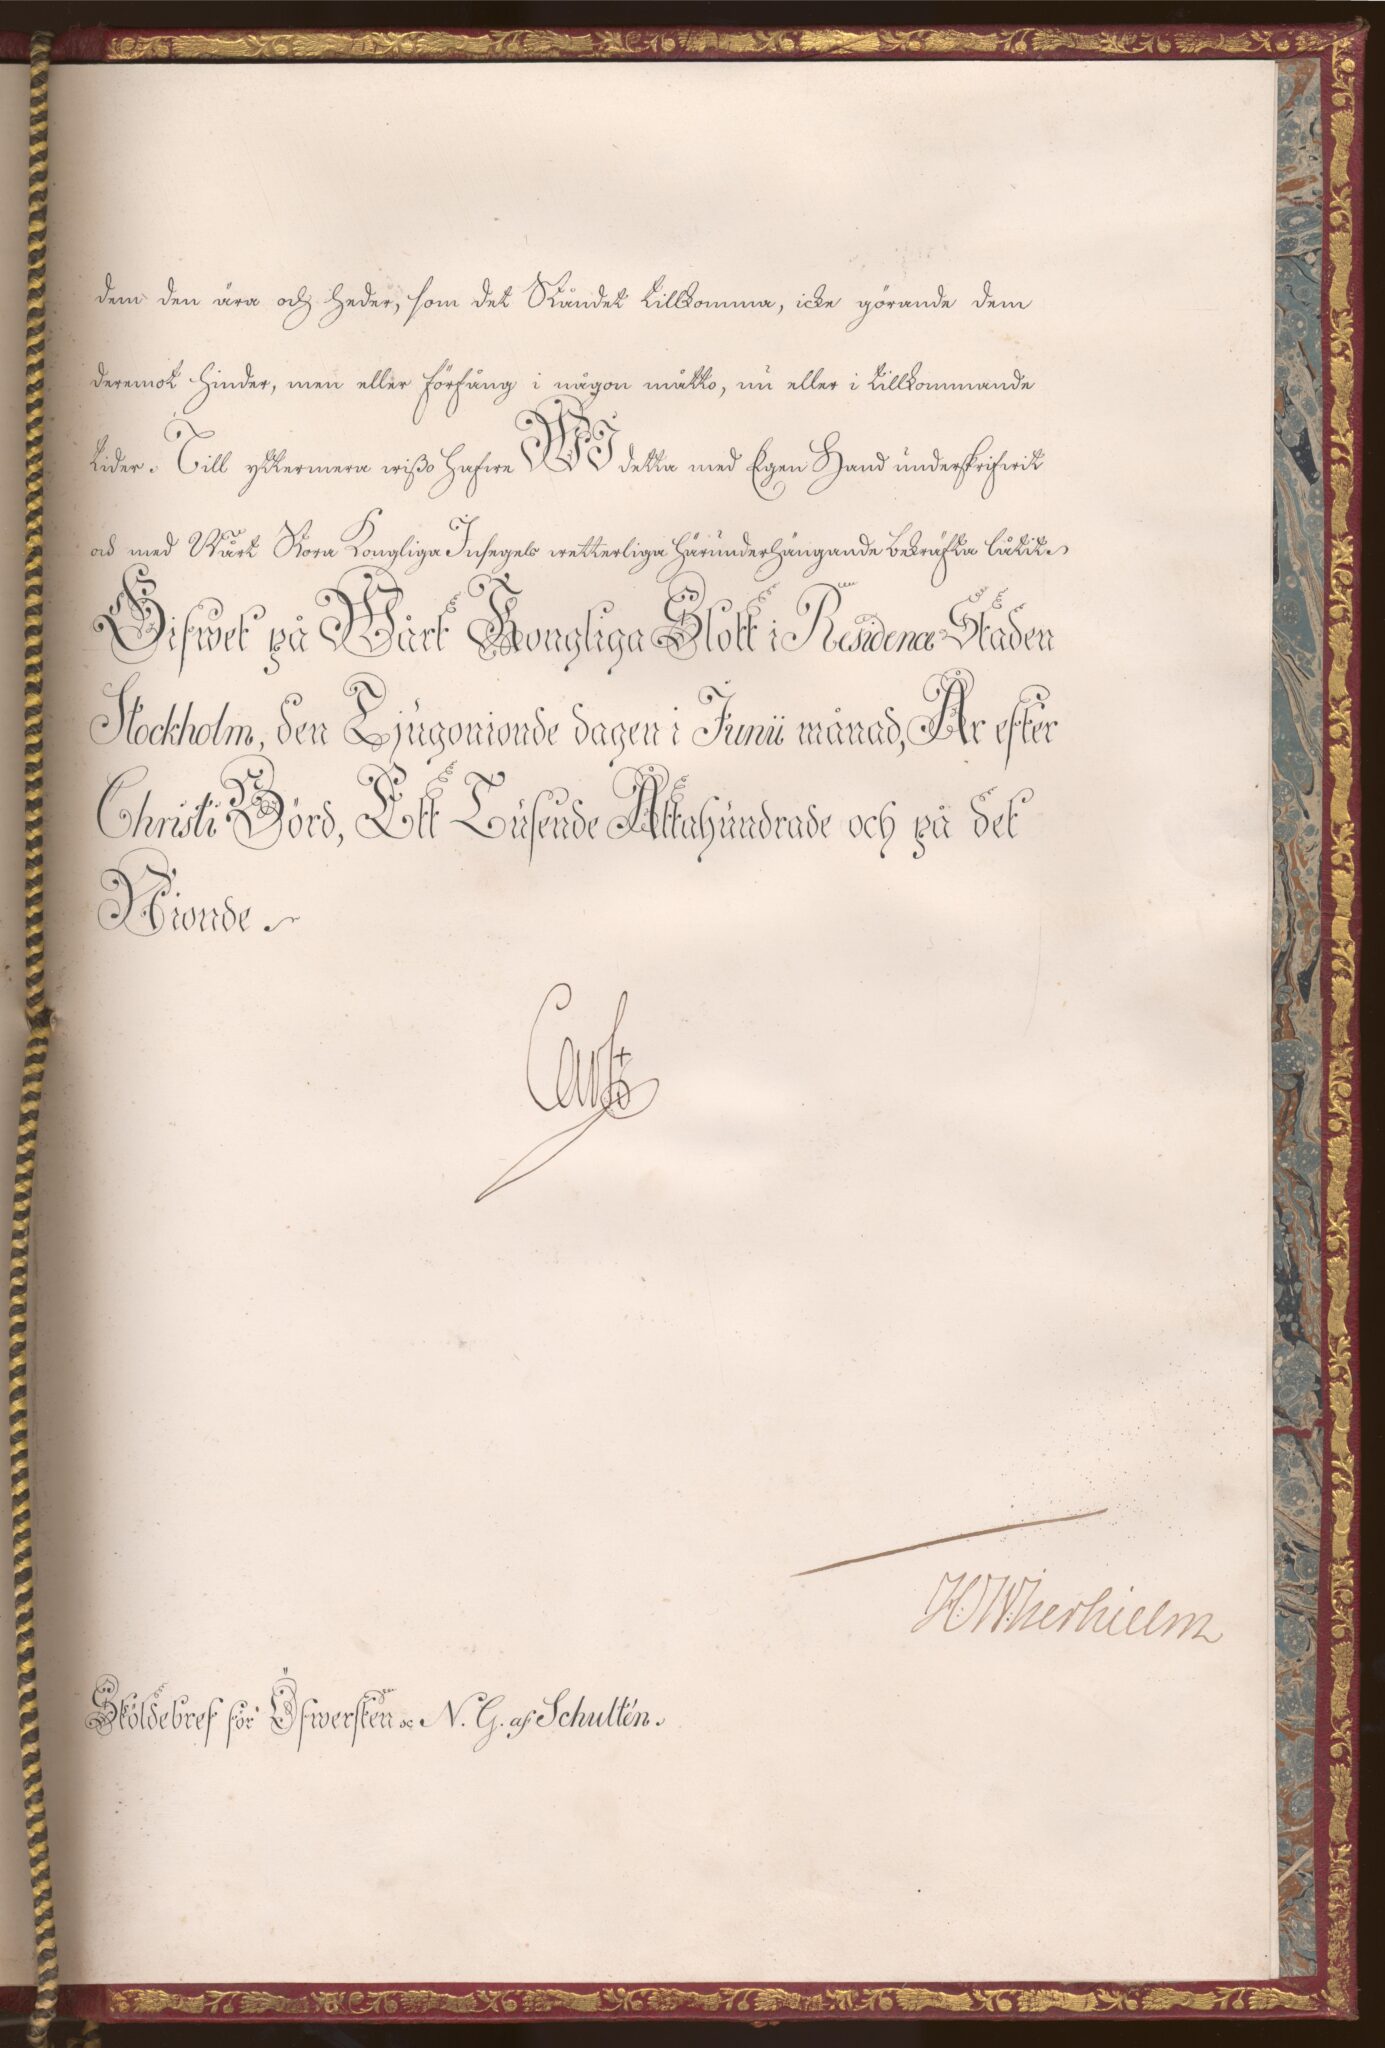 dem den ära och heder, som det Ståndet tillkomma, icke görande dem
deremot hinder, men eller förfång i någon måtto, nu eller i tillkommande
tider. Till yttermera wißo hafwe WJ detta med Egen Hand underskrifwit
och med Wårt Stora Kongliga Insegels wetterliga härunderhängande bekräfta låtit.
Gifwet på Wårt Kongliga Slott i Residence Staden
Stockholm, den Tjugonionde dagen i Junii månad, År efter
Christi Börd, Ett Tusende Åttahundrade och på det
Nionde.
Carl
Sköldebref för Öfwersten N. G. af Schultén.